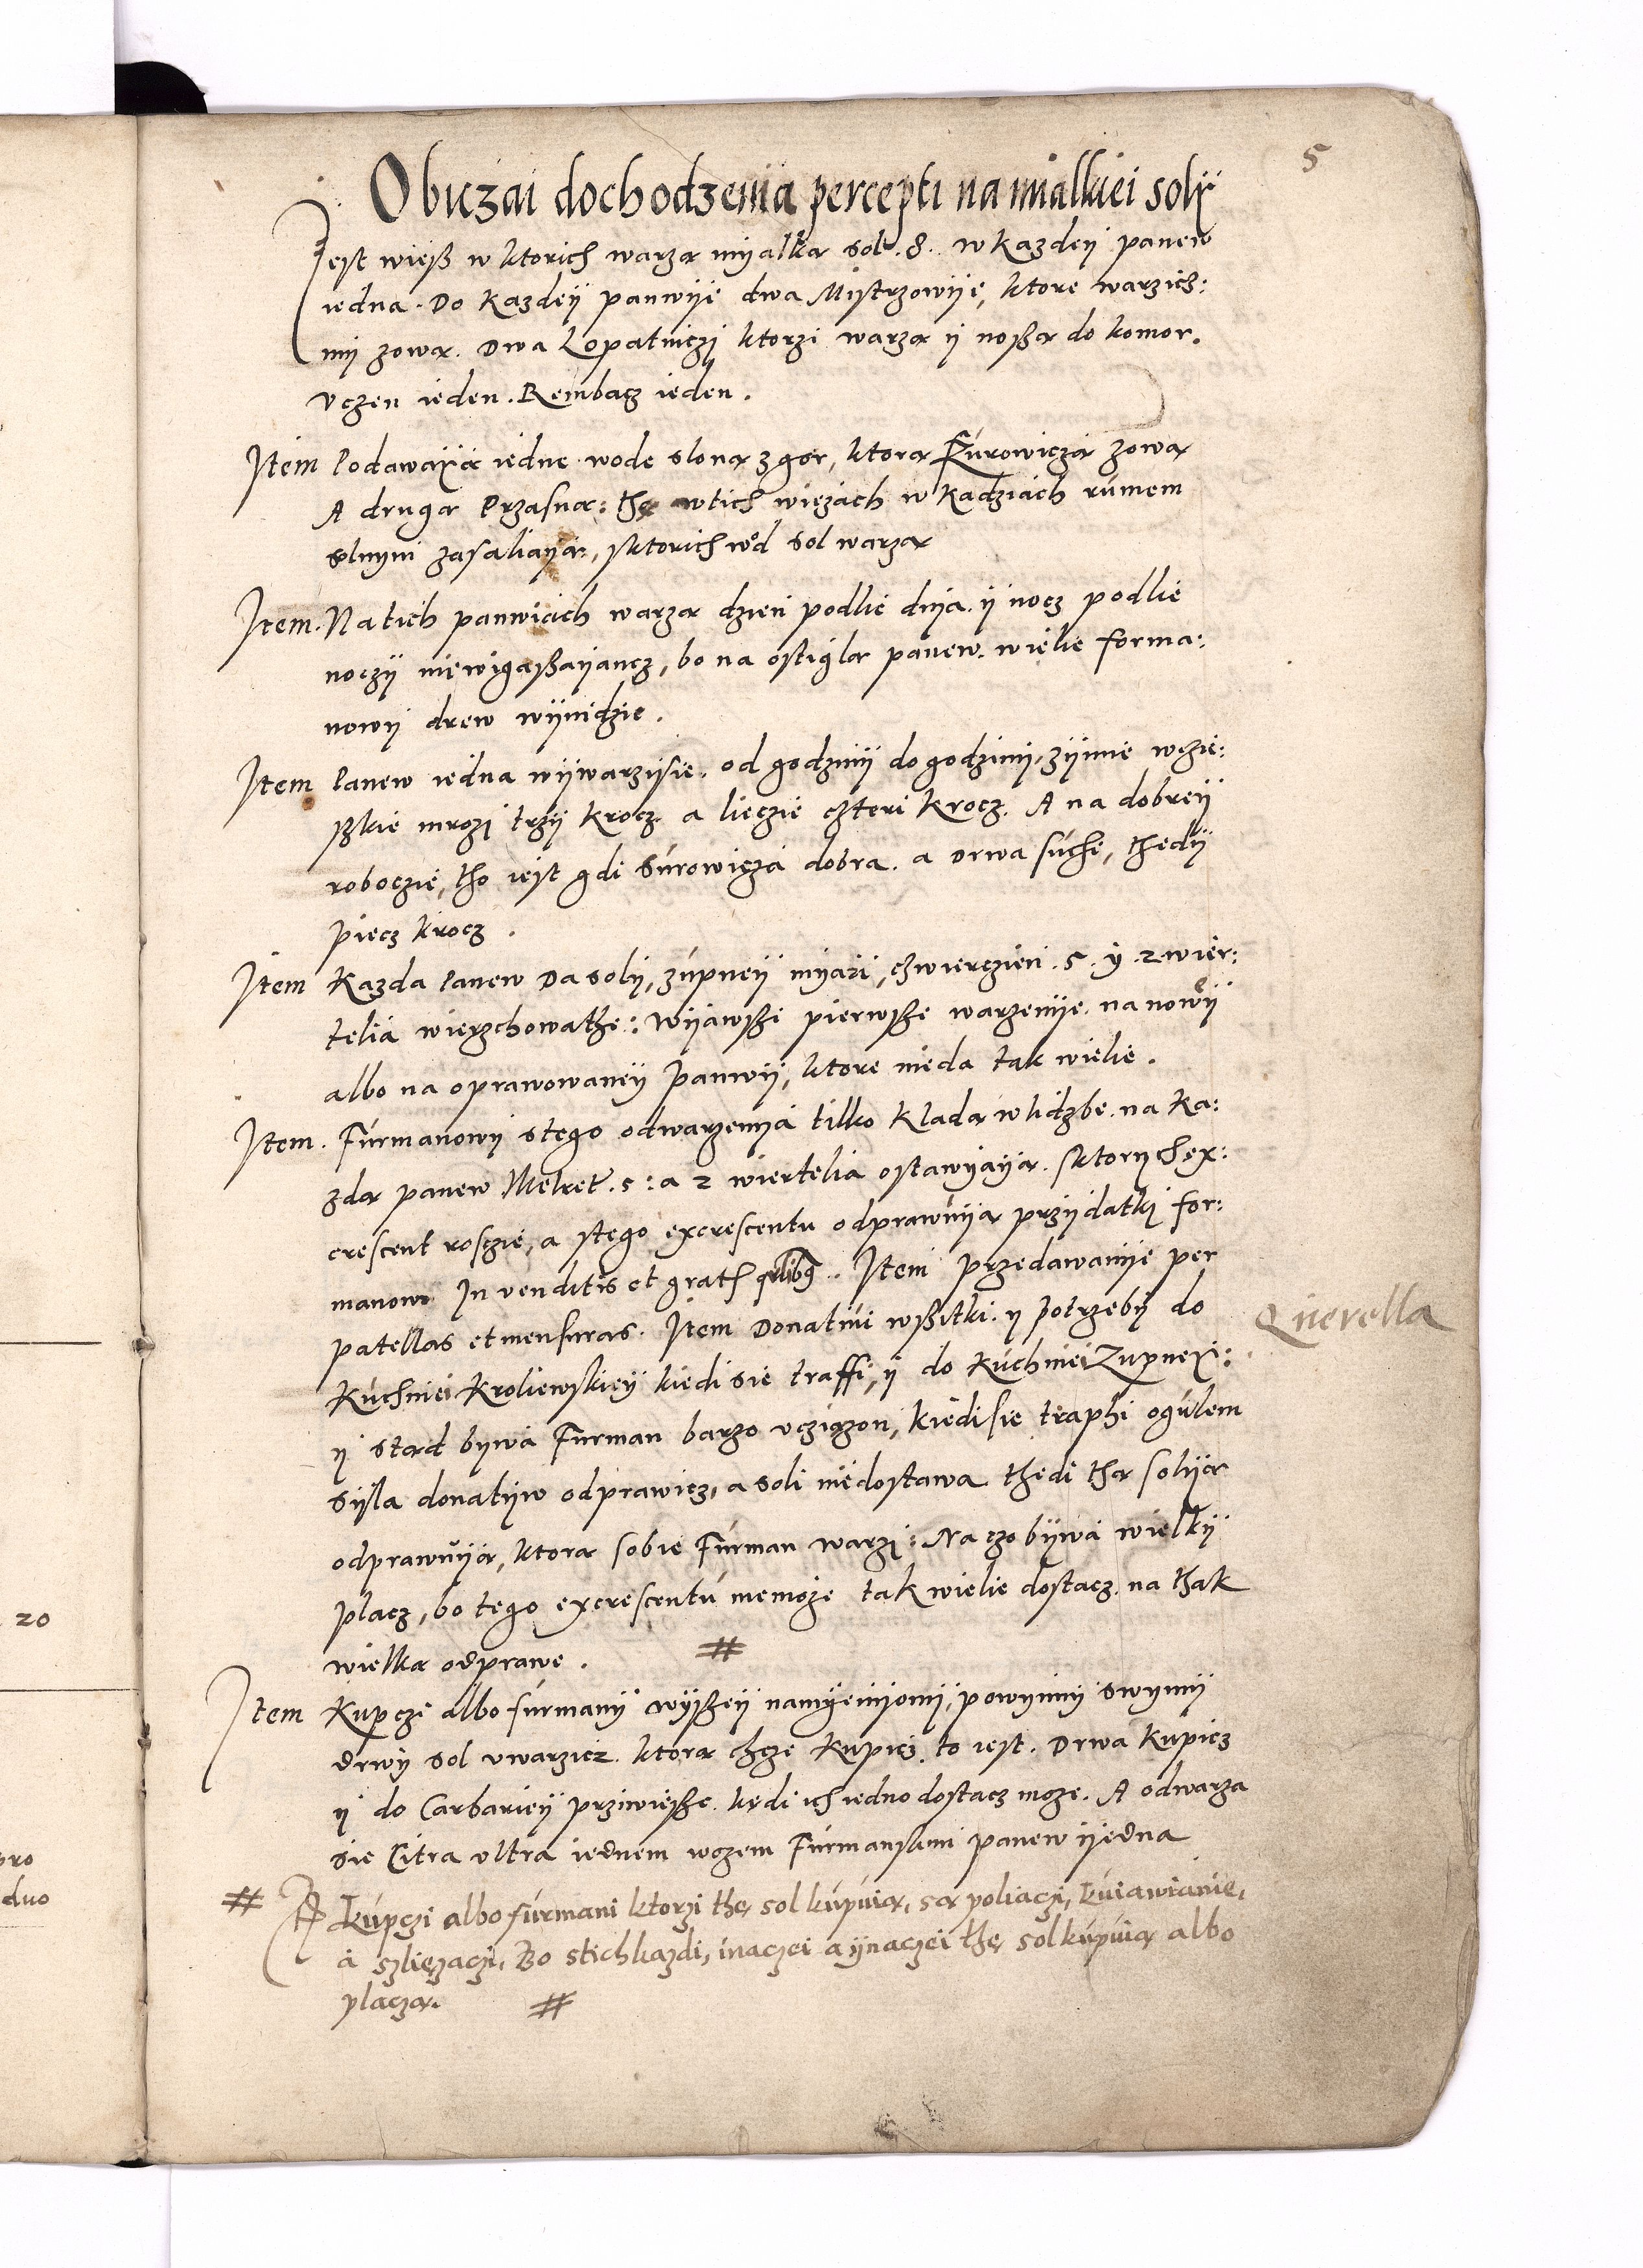 5
Obiczai dochodzenia percepti na mialkiei soly
Jest wieß w ktorich warzą myalką sol. 8. w kazdey panew
iedna. Do kazdey panwye dwa Mystrzowye, ktore warzich:
mi zową. Dwa Lopatniczy ktorzi warzą y noßą do komor.
Uczen ieden. Rembacz ieden.
Item Podawayą iedne wode sloną z gor, ktorą Surowiczą zową
A drugą Przasną: thę wtich wiezach w kadziach rumem
solnym zasaliayą, sktorich wod sol warzą
Item. Na tich panwiach warzą dzien podlie dnya y nocz podlie
noczy niewigaßayancz, bo na ostiglą panew wielie forma:
nowy drew wynidzie.
Item Panew iedna wywarzysie od godziny do godziny, zymie wczie:
szkie mrozi trzy krocz a lieczie czteri krocz. A na dobrey
roboczie, tho iest gdi Surowicza dobra. a Drwa suche, thedy
piecz krocz.
Item Kazda Panew Da soly, zupney myari, czwierczien. 5. y. 2 wier:
telia wierzchowathe: Wyiawßi pierwße warzenye na nowey
albo na oprawowaney panwy, ktore nieda tak wielie.
Item. Furmanowy stego odwarzenya tilko kladą w lidzbe na ka:
zdą panew Melret. 5: a 2 wiertelia ostawyayą. sktorych ex:
crescent rosczie, a stego excrescentu odprawuyą przydatki for:
manow In venditis et grath Item przedawanye per
patellas et mensuras. Item Donatiui wßitki y potrzeby do
Kuchniei Kroliewskiey kiedi sie traffi, y do Kuchniei Zupney:
y stąd bywa Furman barzo uczięzon, kiedi sie traphi ogulem
syla donatyw odprawicz, a soli niedostawa thedi thą solyą
odprawuyą, ktorą sobie Furman warzi: Na czo bywa wielky
placz, bo tego excrescentu niemoże tak wielie dostacz na thak
wielką odprawe. #
Querella
Item Kupcze albo furmany wyßey namyenyony, powynny swymy
drwy sol uwarzicz ktorą chcze kupicz. to iest. Drwa kupicz
y do Carbariey prziwieße kędi ich iedno dostacz może. A odwarza
sie Citra ultra iednem wozem Furmanskim panew yedna
# A kupczi albo furmani ktorzi thę sol kupuią, są poliaczi, kuiawianie,
a szlięzaczi, Bo stich kazdi, inaczei a ynaczei thę sol kupuią albo
placzą. #
20
pro
duo